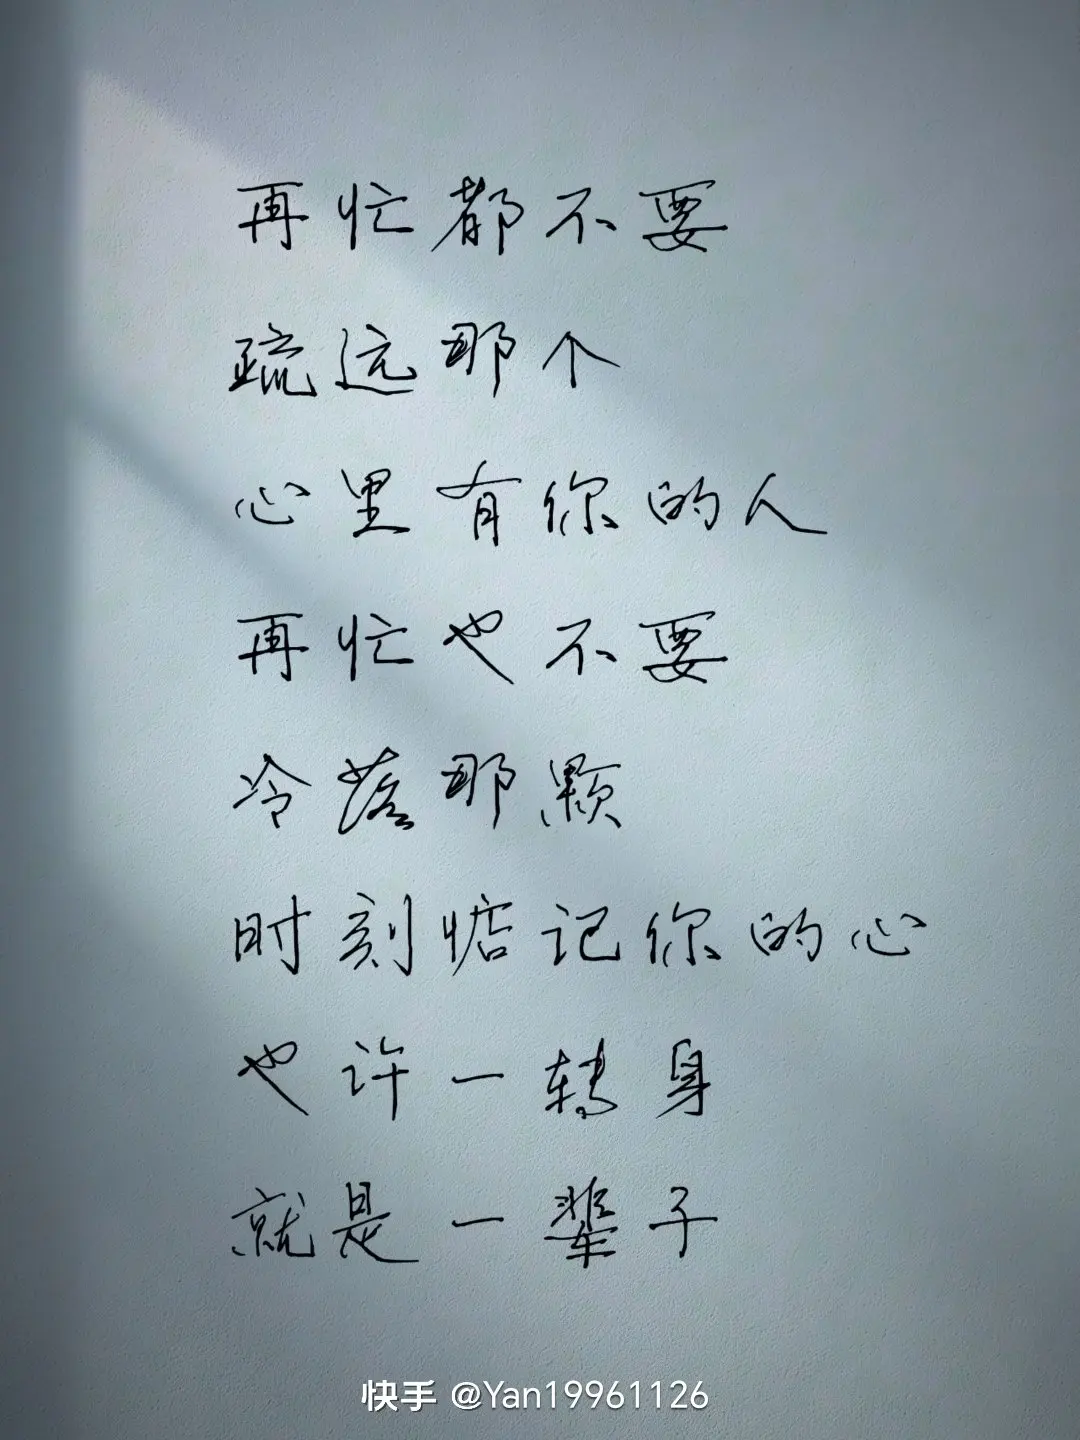 再忙都不要
疏远那个
心里有你的人
再忙也不要
冷落那颗
时刻惦记你的心
也许一转身
就是一辈子
快手 @Yan19961126